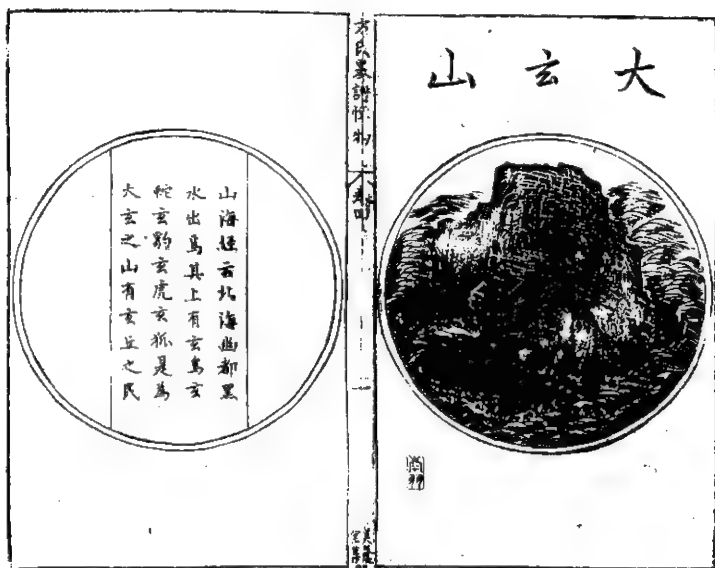 大玄山
方氏墨譜博物
卷四
山海經云北海幽都黑
水出焉其上有玄鳥玄
蛇玄豹玄虎玄狐是為
大玄之山有玄丘之民